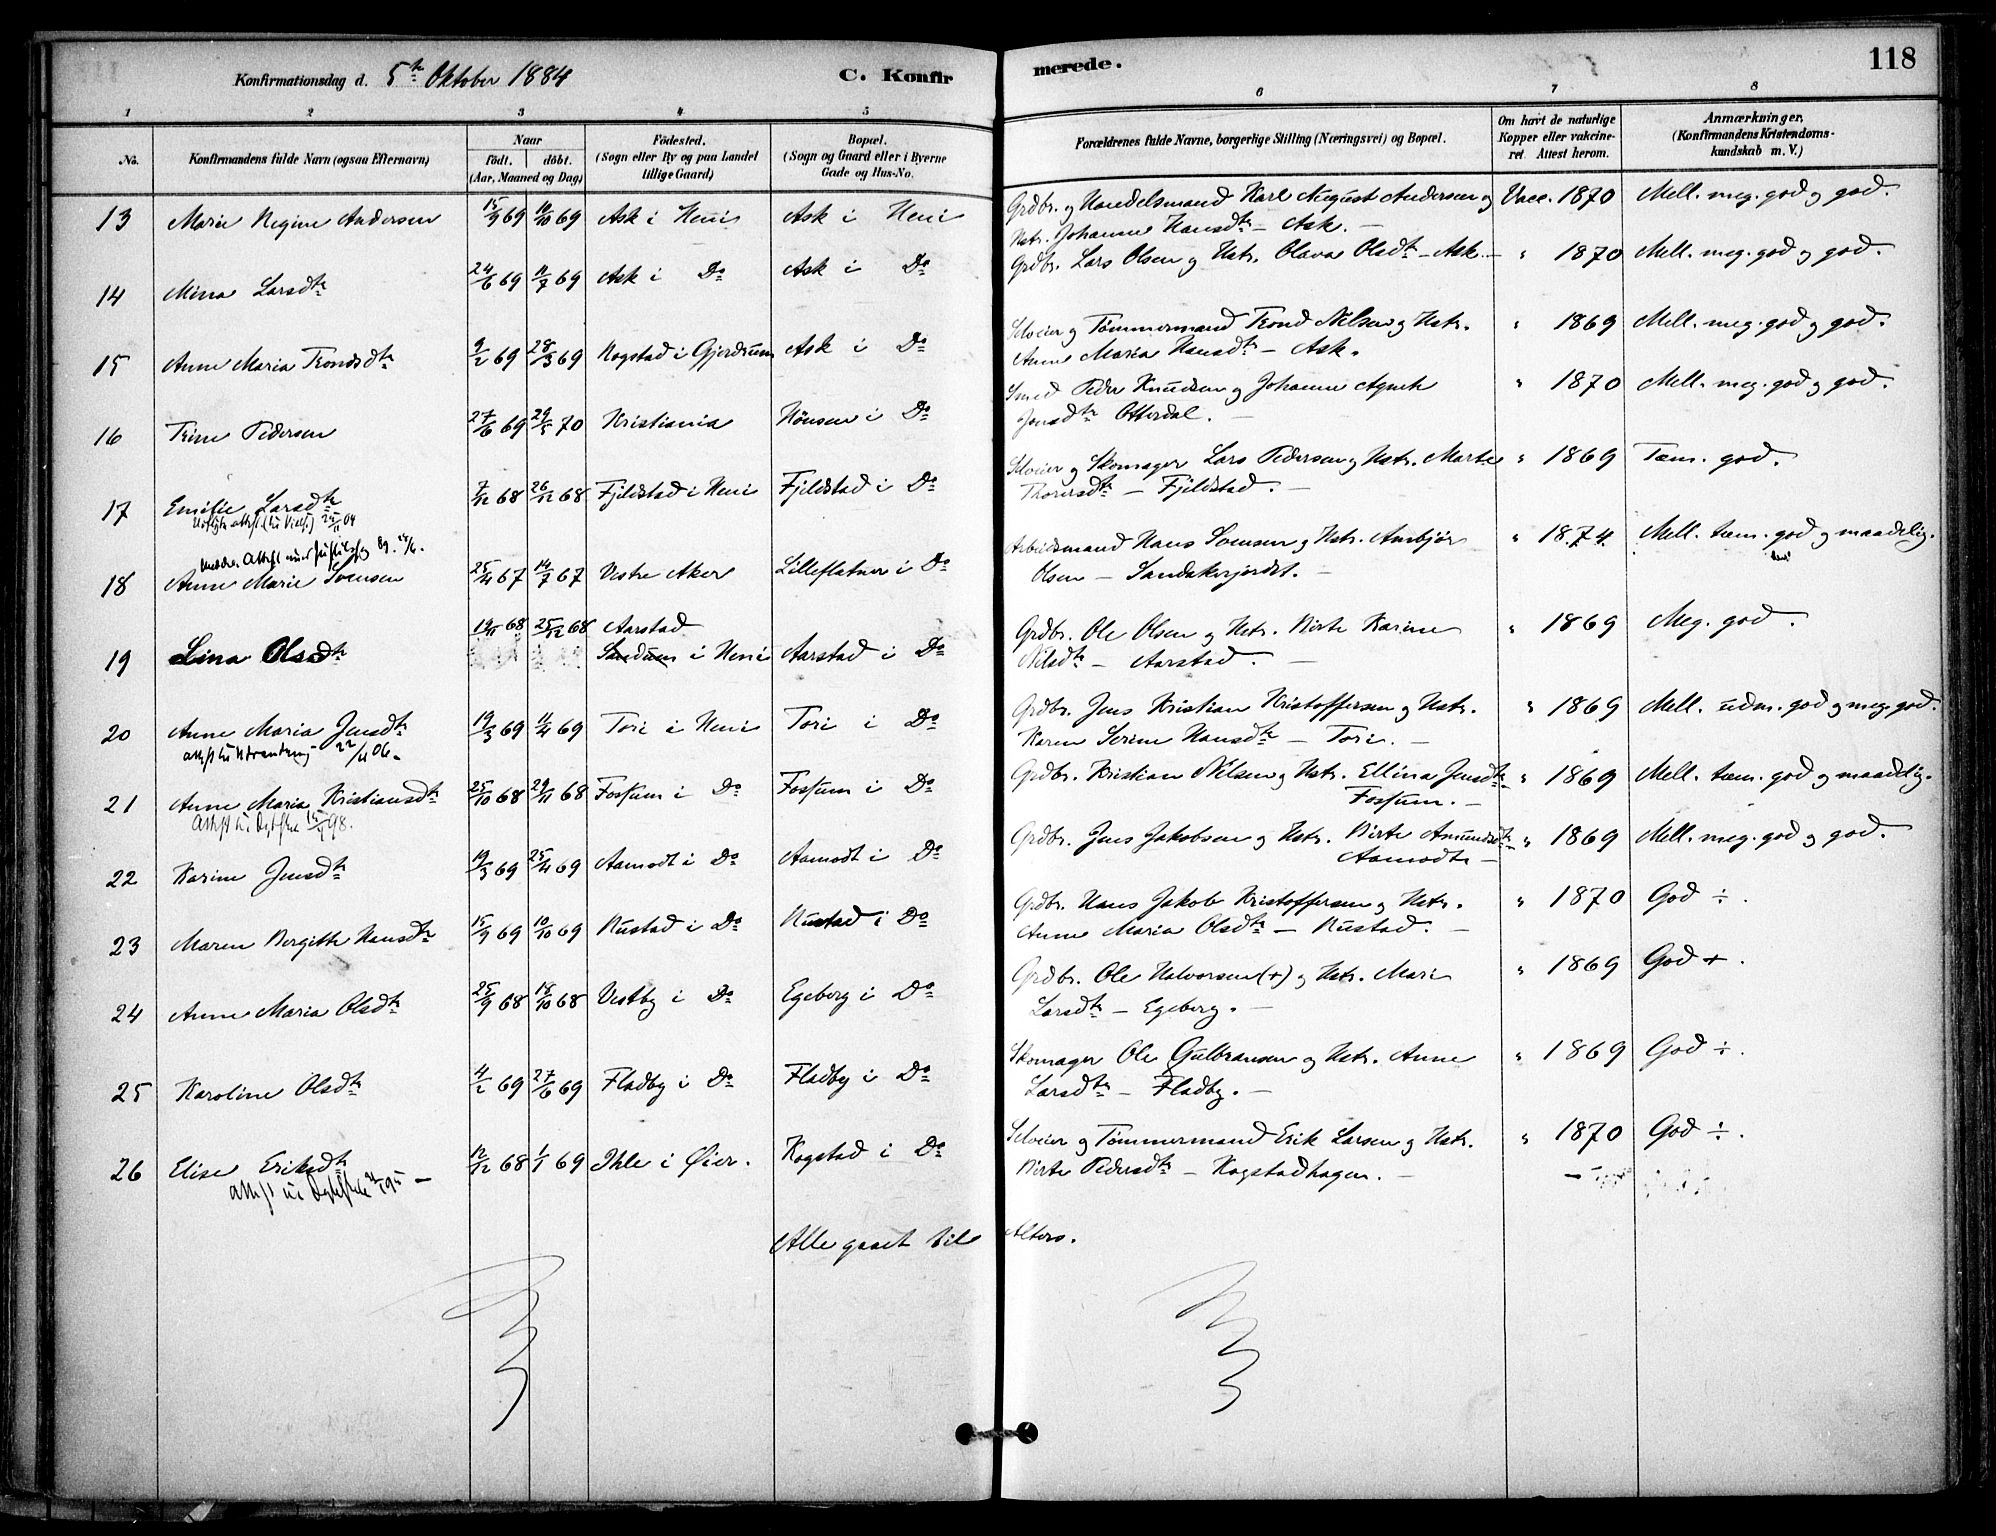 Konfirmationsdag d. 5te Oktober 1884 C. Konfirmerede. 118
1 2 3 4 5 6 7 8
No. Konfirmandens fulde Navn (ogsaa Efternavn) Naar födt. döbt. (Aar, Maaned og Dag) Födested. (Sogn eller By og paa Landet tillige Gaard) Bopæl. (Sogn og Gaard eller i Byerne Gade og Hus-No. Forældrenes fulde Navne, borgerlige Stilling (Næringsvei) og Bopæl. Om havt de naturlige Kopper eller vakcineret. Attest herom. Anmærkninger. (Konfirmandens Kristendomskundskab m. V.)
13 Marie Regine Andersen 15/9 69 10/10 69 Ask i Heni Ask i Heni Grdbr. og Handelsmand Karl August Andersen og Vacc. 1870 Mell. meg. god og god.
Hstr. Johanne Hansdtr – Ask. –
14 Mina Larsdtr 24/6 69 11/7 69 Ask i Do Ask i Do Grdbr. Lars Olsen og Hstr. Olava Olsdtr – Ask. – " 1870 Mell. meg. god og god.
15 Anne Maria Trondsdtr 9/2 69 28/3 69 Kogstad i Gjerdrum Ask i Do Selveier og Tømmermand Trond Nilsen og Hstr. " 1869 Mell. meg. god og god.
Anne Maria Hansdtr – Ask.
16 Trine Pedersen 27/6 69 29/5 70 Kristiania Hönsen i Do Smed Peder Knudsen og Johanne Agnete " 1870 Mell. meg. god og god.
Jensdtr Otterdal. –
17 Emilie Larsdtr 7/12 68 26/12 68 Fjeldstad i Heni Fjeldstad i Do Selveier og Skomager Lars Pedersen og Hstr. Marte " 1869 Tem. god.
Thorersdtr – Fjeldstad. –
18 Anne Marie Svensen 25/4 67 14/7 67 Vestre Aker Lilleflatner i Do Arbeidsmand Hans Svensen og Hstr. Ambjør " 1874. Mell. tem. god og maadelig.
Olsen – Sandakerjordet. –
19 Lina Olsdtr 19/11 68 25/12 68 Aarstad
i Heni Aarstad i Do Grdbr. Ole Olsen og Hstr. Birte Karine " 1869 Meg. god.
Nilsdtr – Aarstad. –
20 Anne Maria Jensdtr 19/3 69 11/4 69 Tori i Heni Tori i Do Grdbr. Jens Kristian Kristoffersen og Hstr. " 1869 Mell. udm. god og meg. god.
Karen Serine Hansdtr – Tori. –
21 Anne Maria Kristiansdtr 25/10 68 29/11 68 Fossum i Do Fossum i Do Grdbr. Kristian Nilsen og Hstr. Ellina Jensdtr – " 1869 Mell. tem. god og maadelig.
Fossum. –
22 Karine Jensdtr 19/3 69 25/4 69 Aamodt i Do Aamodt i Do Grdbr. Jens Jakobsen og Hstr. Birte Amundsdtr – " 1869 Mell. meg. god og god.
Aamodt –
23 Maren Bergitte Hansdtr 15/9 69 10/10 69 Rustad i Do Rustad i Do Grdbr. Hans Jakob Kristoffersen og Hstr. " 1870 God ÷.
Anne Maria Olsdtr – Rustad. –
24 Anne Maria Olsdtr 25/9 68 18/10 68 Vestby i Do Egeberg i Do Grdbr. Ole Halvorsen (+) og Hstr. Mari " 1869 God +.
Larsdtr – Egeberg. –
25 Karoline Olsdtr 4/2 69 27/6 69 Fladby i Do Fladby i Do Skomager Ole Gulbransen og Hstr. Anne " 1869 God ÷.
Larsdtr – Fladby. –
26 Elise Eriksdtr 12/12 68 1/1 69 Ihle i Øier. Kogstad i Do Selveier og Tømmermand Erik Larsen og Hstr. " 1870 God ÷.
Birte Pedersdtr – Kogstadhagen. –
Alle gaaet til Alters.